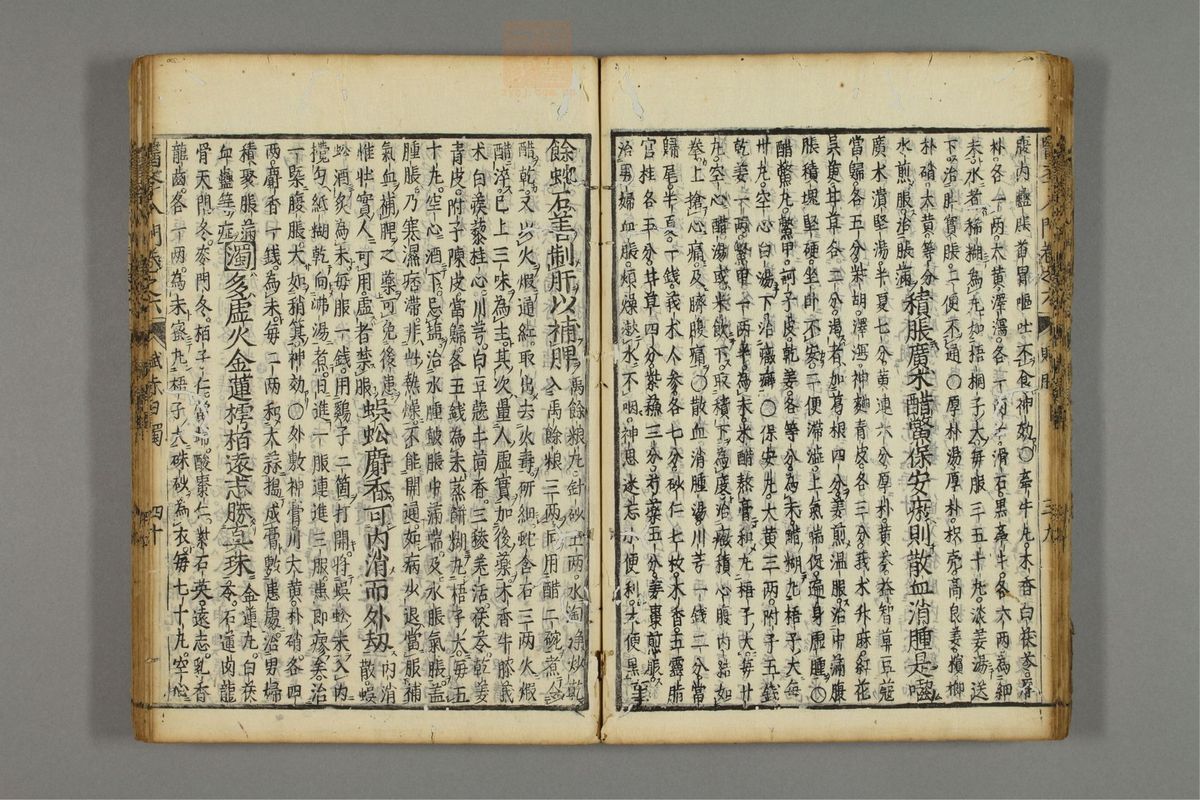 腐内蠱脹首胃嘔吐不食神効〇牽牛丸木香白茯苓厚
朴各一兩大黃澤瀉各一兩二滑石黑牽牛各六兩為細
末水煮稀糊為丸如梧桐子大每服三五十丸淡姜湯送
下治脾實脹二便不通〇厚朴湯厚朴枳壳高良姜檳榔
朴硝大黃等分
水煎服治脹滿
積脹廣朮醋鱉保安
則散血消腫
廣朮潰堅湯半夏七分黃連六分厚朴黃芩益智草豆蔻
當歸各五分柴胡澤瀉神麯青皮各三分我朮升麻紅花
吳萸甘草各二分渴者加葛根四分姜煎温服治中滿腹
脹積塊堅硬坐卧不安二便滯澁上氣喘促遍身腫〇
醋鱉丸鱉甲訶子皮乾姜各等分為末醋糊丸梧子大每
卅丸空心白湯下治癥癖〇保安丸大黃三兩附子五錢
乾姜一兩鱉甲一兩半為末米醋熬膏和丸梧子大每廿
丸空心醋湯或米飲下取積下為度治癥積心腹内結如
拳上搶心痛及臍腹痛〇散血消腫湯川芎一錢二分當
歸尾半夏一錢莪朮人參各七分砂仁七枚木香五靈脂
官桂各五分甘草四分紫蘓三分芍藥五分姜棗煎服
治男婦血脹煩燥漱水不咽神思迷忘小便利大便黑
餘蛇石善制肝以補脾
禹餘粮三兩同用醋二碗煮
醋乾又以火煆通紅取出去火毒研細蛇含石三兩火煆
醋淬已上三味為主其次量人虛實加後藥木香牛膝莪
朮白蒺藜桂心川芎白豆蔲土茴香三稜羌活茯苓乾姜
青皮附子陳皮當歸各五錢為末蒸餅糊丸梧子大每五
十丸空心酒下忌塩治水腫皷脹中滿喘及水脹氣脹盖
腫脹乃寒濕痞滯非此熱燥不能開通如病少退當服補
氣血補脾之藥可免後患
惟壯實人可用虛者禁服
蜈蚣麝香可内消而外刼
蚣酒炙為末每服一錢用鷄子二箇打開將蜈蚣末入内
攪勻紙糊乾向沸湯煮旦進一服連進三服患即瘳矣治
一槩腹脹大如稍箕神効〇外敷神膏川大黃朴硝各四
兩麝香一錢為末每二兩和大蒜搗成膏敷患處治男婦
積聚脹滿
血蠱等症
濁多虛火金蓮樗栢遠志勝真珠
骨天門冬麥門冬栢子仁當歸酸棗仁紫石英遠志乳香
龍齒各一兩為末蜜丸梧子大硃砂為衣每七十丸空心
醫學入門卷之六
賦赤白濁
四十